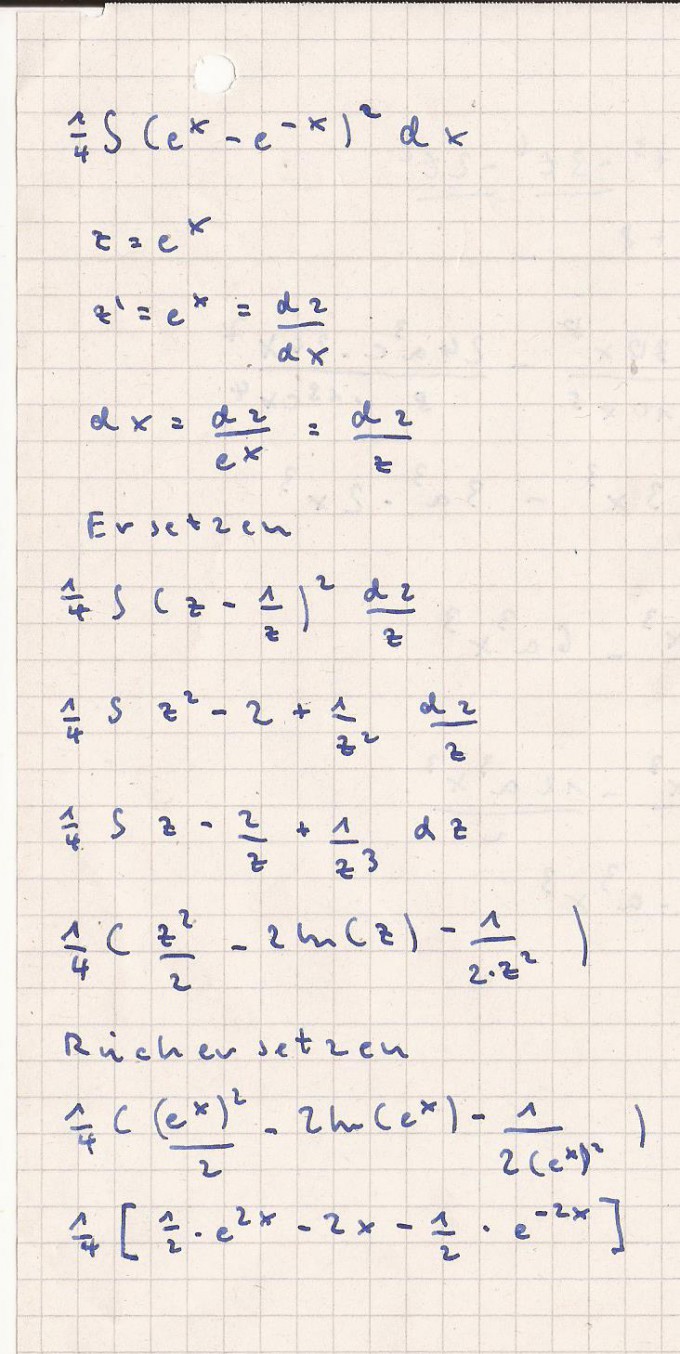 1/4 ∫ (e^x - e^-x)^2 dx
z = e^x
z' = e^x = dz/dx
dx = dz/e^x = dz/z
Ersetzen
1/4 ∫ (z - 1/z)^2 dz/z
1/4 ∫ z^2 - 2 + 1/z^2 dz/z
1/4 ∫ z - 2/z + 1/z^3 dz
1/4 ( z^2/2 - 2 ln(z) - 1/(2·z^2) )
Rückersetzen
1/4 ( (e^x)^2/2 - 2 ln(e^x) - 1/(2(e^x)^2) )
1/4 [ 1/2 · e^2x - 2x - 1/2 · e^-2x ]